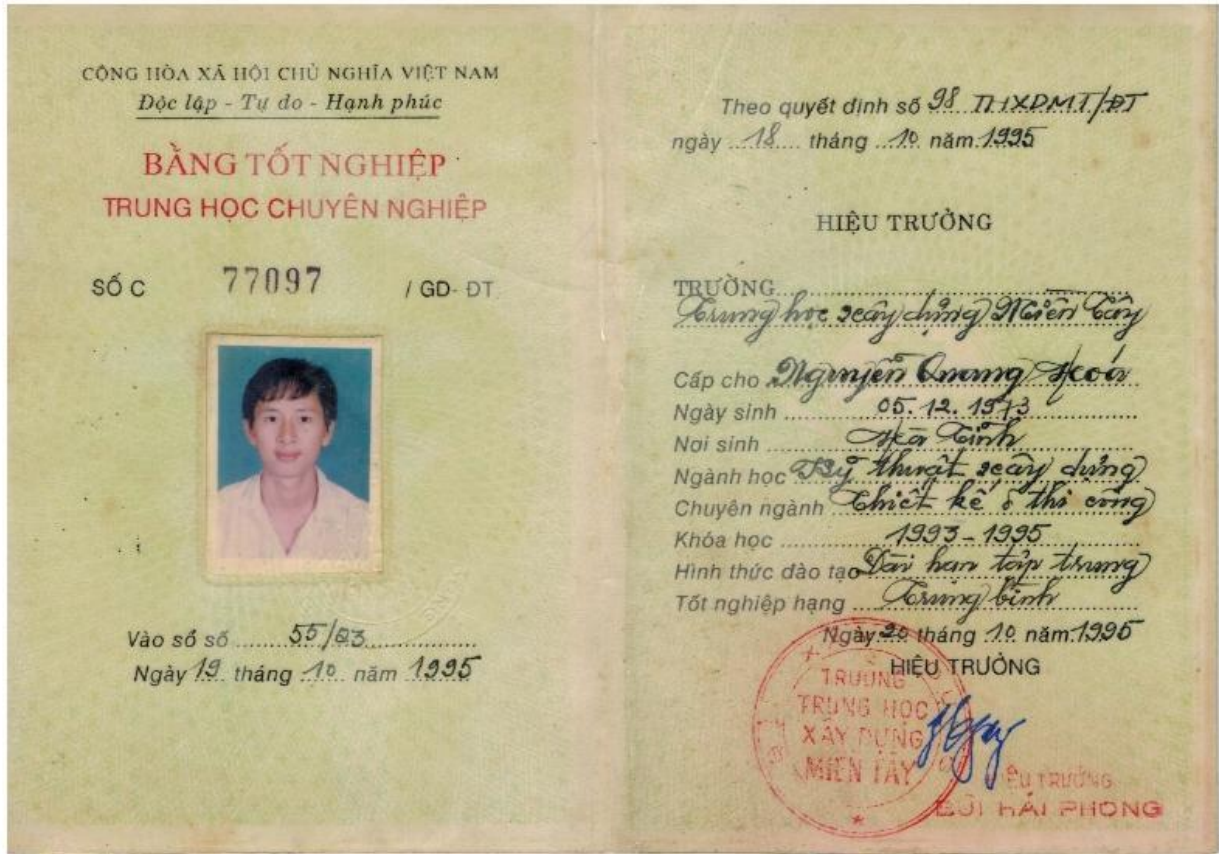 CỘNG HÒA XÃ HỘI CHỦ NGHĨA VIỆT NAM
Độc lập - Tự do - Hạnh phúc
BẰNG TỐT NGHIỆP
TRUNG HỌC CHUYÊN NGHIỆP
SỐ C 77097 / GD- ĐT
Vào sổ số 55/
Ngày 19 tháng 10 năm 1995
Theo quyết định số 98 THXDMT/ĐT
ngày 18 tháng 10 năm 1995
HIỆU TRƯỞNG
TRƯỜNG
Trung học xây dựng Miền Tây
Cấp cho Nguyễn Quang Hoá
Ngày sinh 05.12.1973
Nơi sinh Hà Tĩnh
Ngành học Kỹ thuật xây dựng
Chuyên ngành Thiết kế & thi công
Khóa học 1993-1995
Hình thức đào tạo Dài hạn tập trung
Tốt nghiệp hạng Trung bình
Ngày 20 tháng 10 năm 1995
HIỆU TRƯỞNG
TRƯỜNG
TRUNG HỌC
XÂY DỰNG
MIỀN TÂY
HIỆU TRƯỞNG
BÙI HẢI PHONG